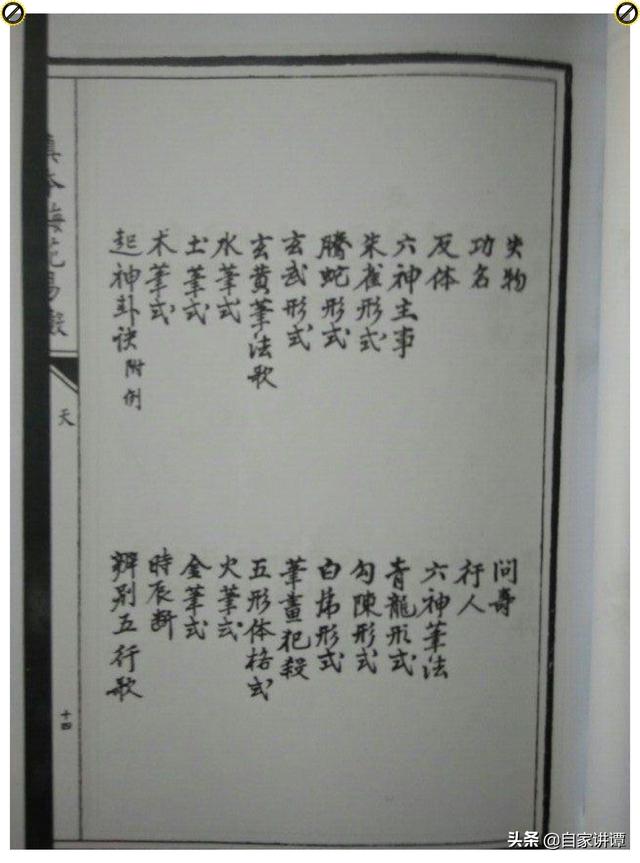 失物
问壽
功名
行人
反体
六神筆法
六神主事
青龍形式
朱雀形式
勾陳形式
騰蛇形式
白虎形式
玄武形式
筆畫犯殺
玄黄筆法歌
五形体格式
水筆式
火筆式
土筆式
金筆式
木筆式
時辰断
起神卦诀 附例
辨别五行歌
真本梅花易數
天
十四
头条 @自家讲谭